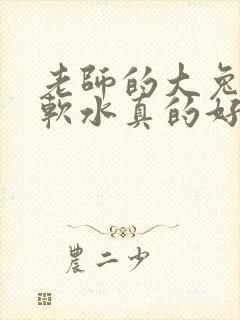 老師的大兔
軟水真的好
農二少